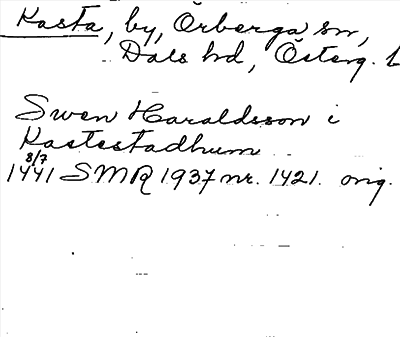 Kasta, by, Örberga sn,
Dals hd, Österg. l
Swen Haraldsson i
Kastestadhum
8/7
1441 SMR 1937 nr. 1421. orig.